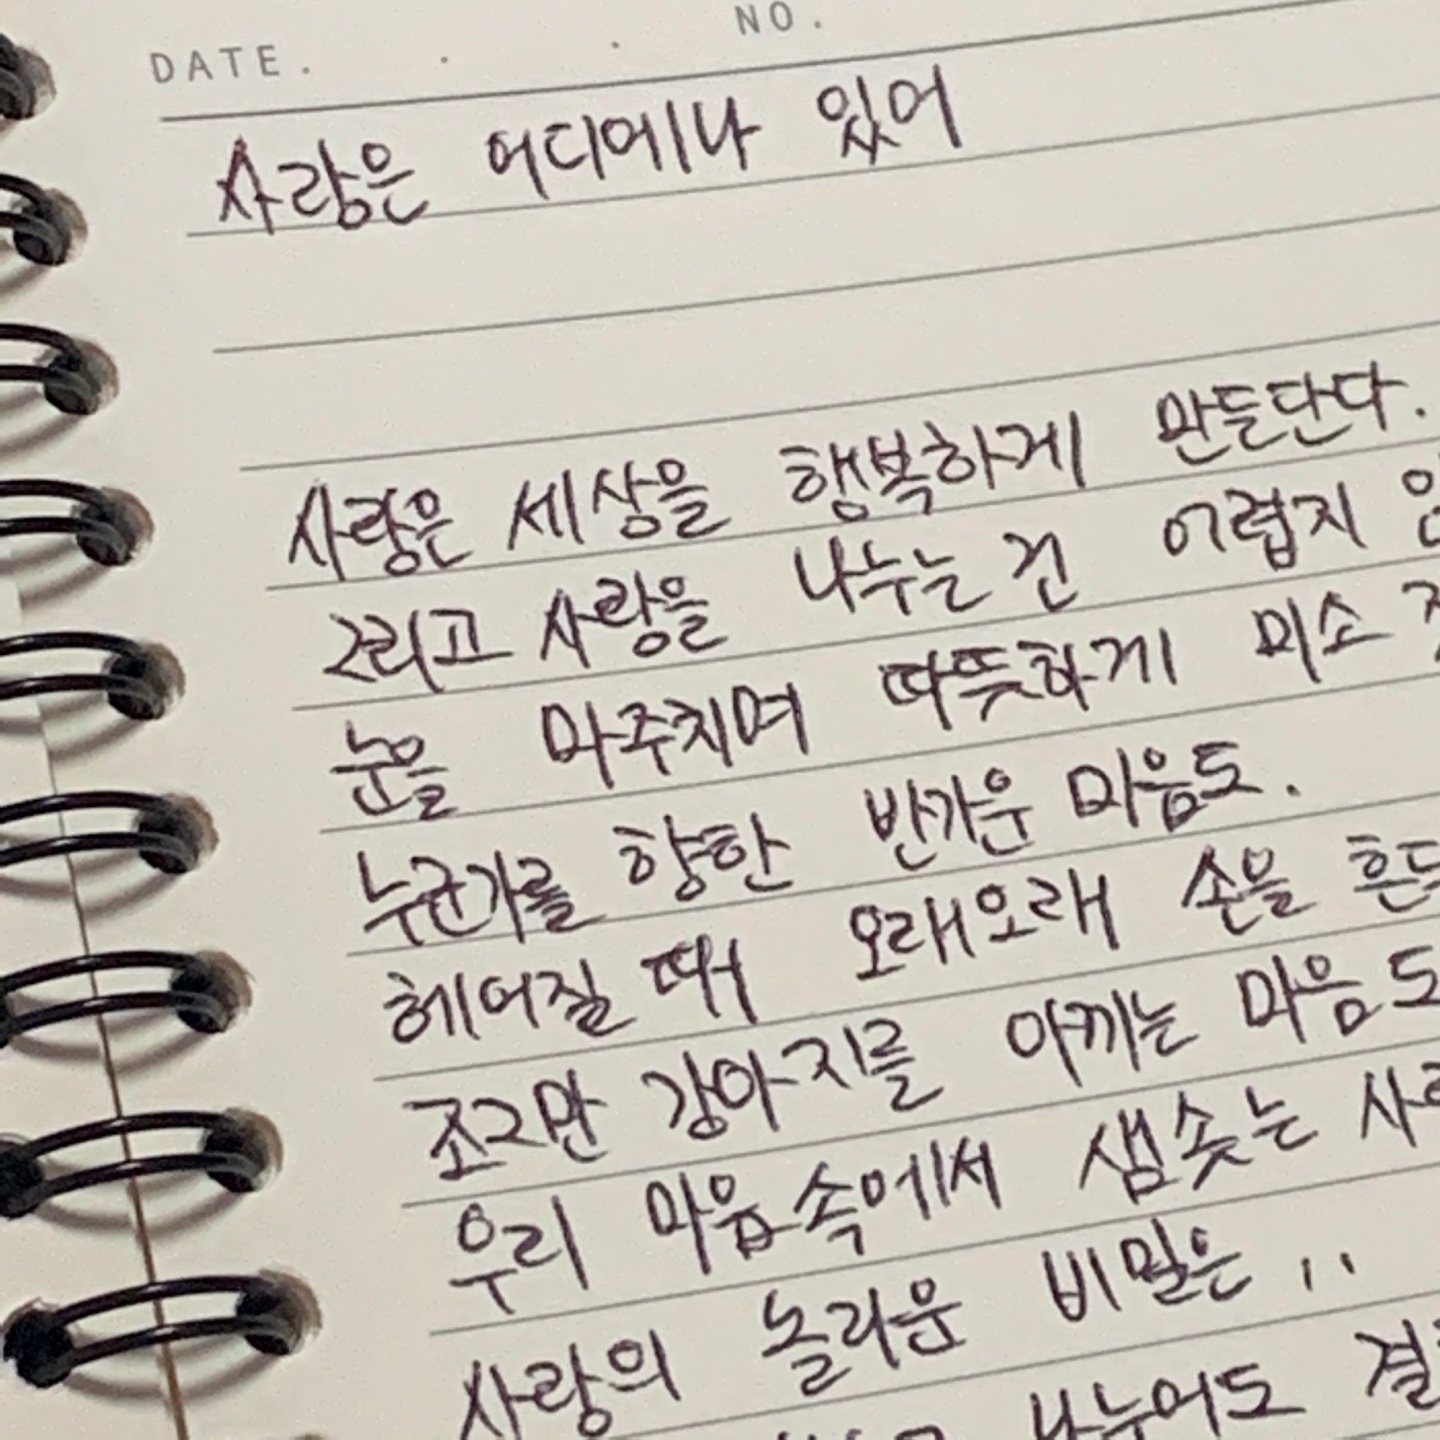 DATE. . . NO.
사랑은 어디에나 있어
사랑은 세상을 행복하게 만들단다.
그리고 사랑을 나누는 건 어렵지
눈을 마주치며 따뜻하게 미소
누군가를 향한 반가운 마음도.
헤어질 때 오래오래 손을
조그만 강아지를 아끼는 마음도
우리 마음속에서 샘솟는
사랑의 놀라운 비밀은 ..
나누어도